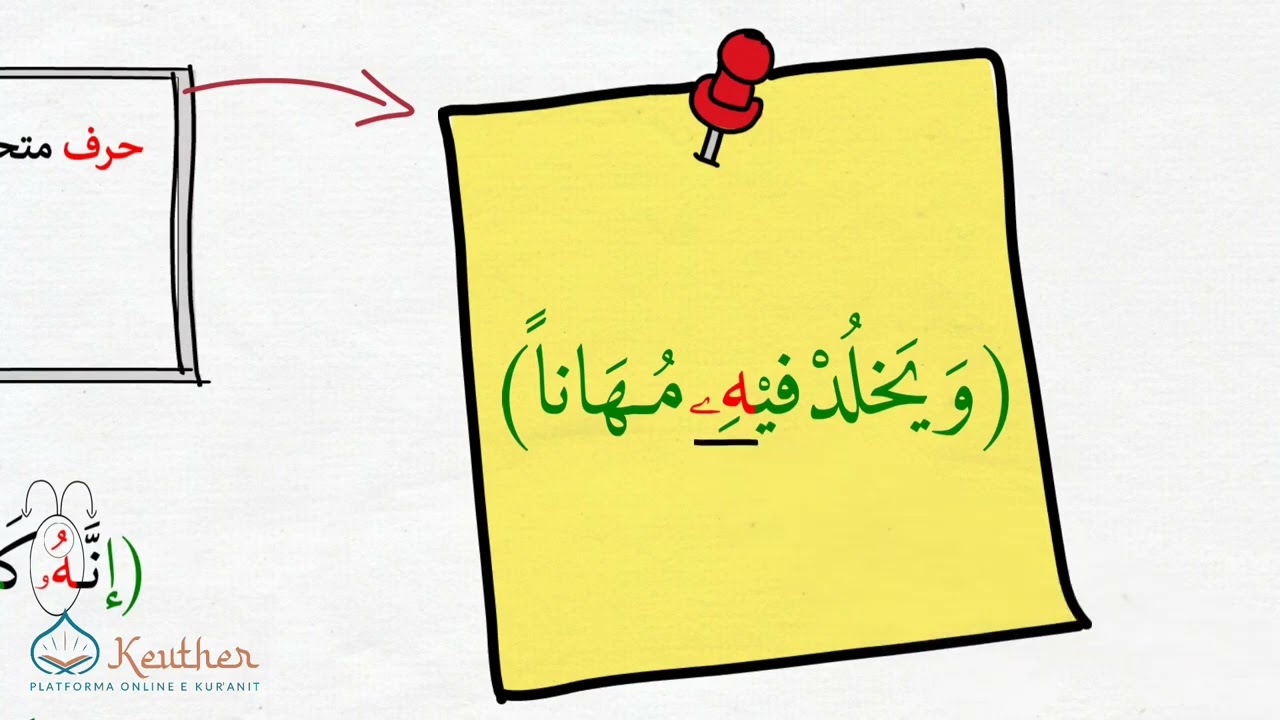 حرف
(وَيَخلُدْ فيْهِے مُهَاناً)
(إنَّهُو
Keuther
PLATFORMA ONLINE E KUR'ANIT